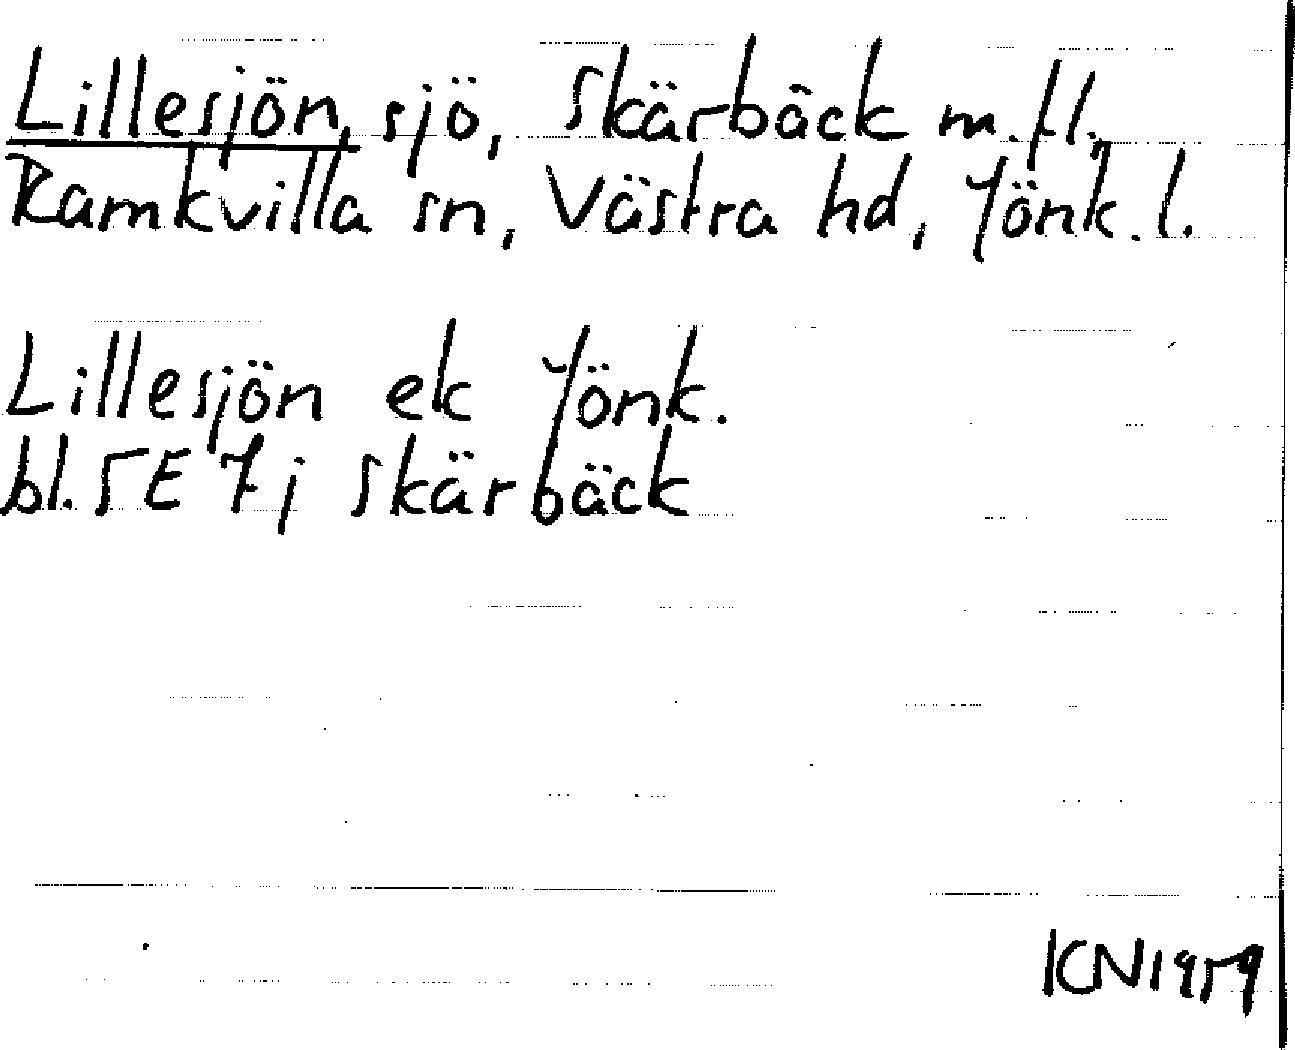 Lillesjön, sjö, Skärbäck m.fl.,
Ramkvilla sn, Västra hd, Jönk.l.
Lillesjön ek Jönk.
bl. 5E 7j Skärbäck
KN 1959